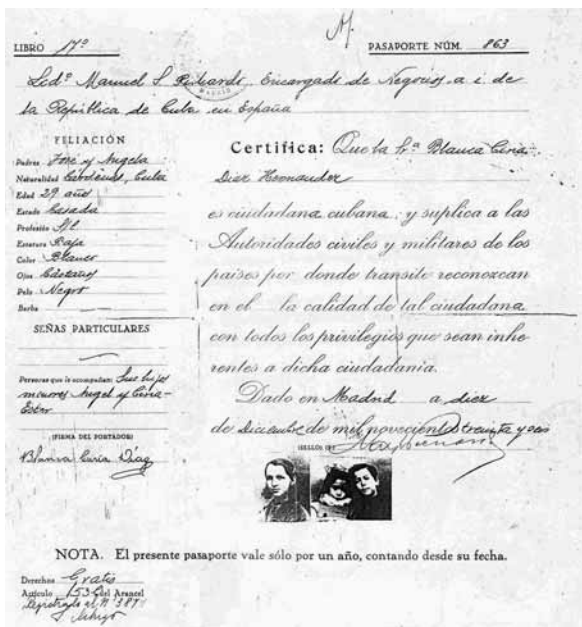 M.
LIBRO 17º PASAPORTE NÚM. 863
Lcdº Manuel S. Pichardo, Encargado de Negocios a. i. de
la República de Cuba en España
FILIACIÓN
Padres José y Angela
Naturalidad Cárdenas, Cuba
Edad 29 años
Estado Casada
Profesión
Estatura Baja
Color Blanco
Ojos Castaños
Pelo Negro
Barba
SEÑAS PARTICULARES
Personas que le acompañan: Sus hijos
menores Angel y Ciria-
Ester
(FIRMA DEL PORTADOR)
Blanca Ciria Díaz
Certifica: Que la Sª Blanca Ciria
Diaz Hernandez
es ciudadana cubana, y suplica a las
Autoridades civiles y militares de los
países por donde transite reconozcan
en el la calidad de tal ciudadana
con todos los privilegios que sean inhe-
rentes a dicha ciudadanía.
Dado en Madrid a diez
de Diciembre de mil novecientos treinta y seis
(SELLO)
NOTA. El presente pasaporte vale sólo por un año, contando desde su fecha.
Derechos Gratis
Artículo 153 del Arancel
Registrado al Nº